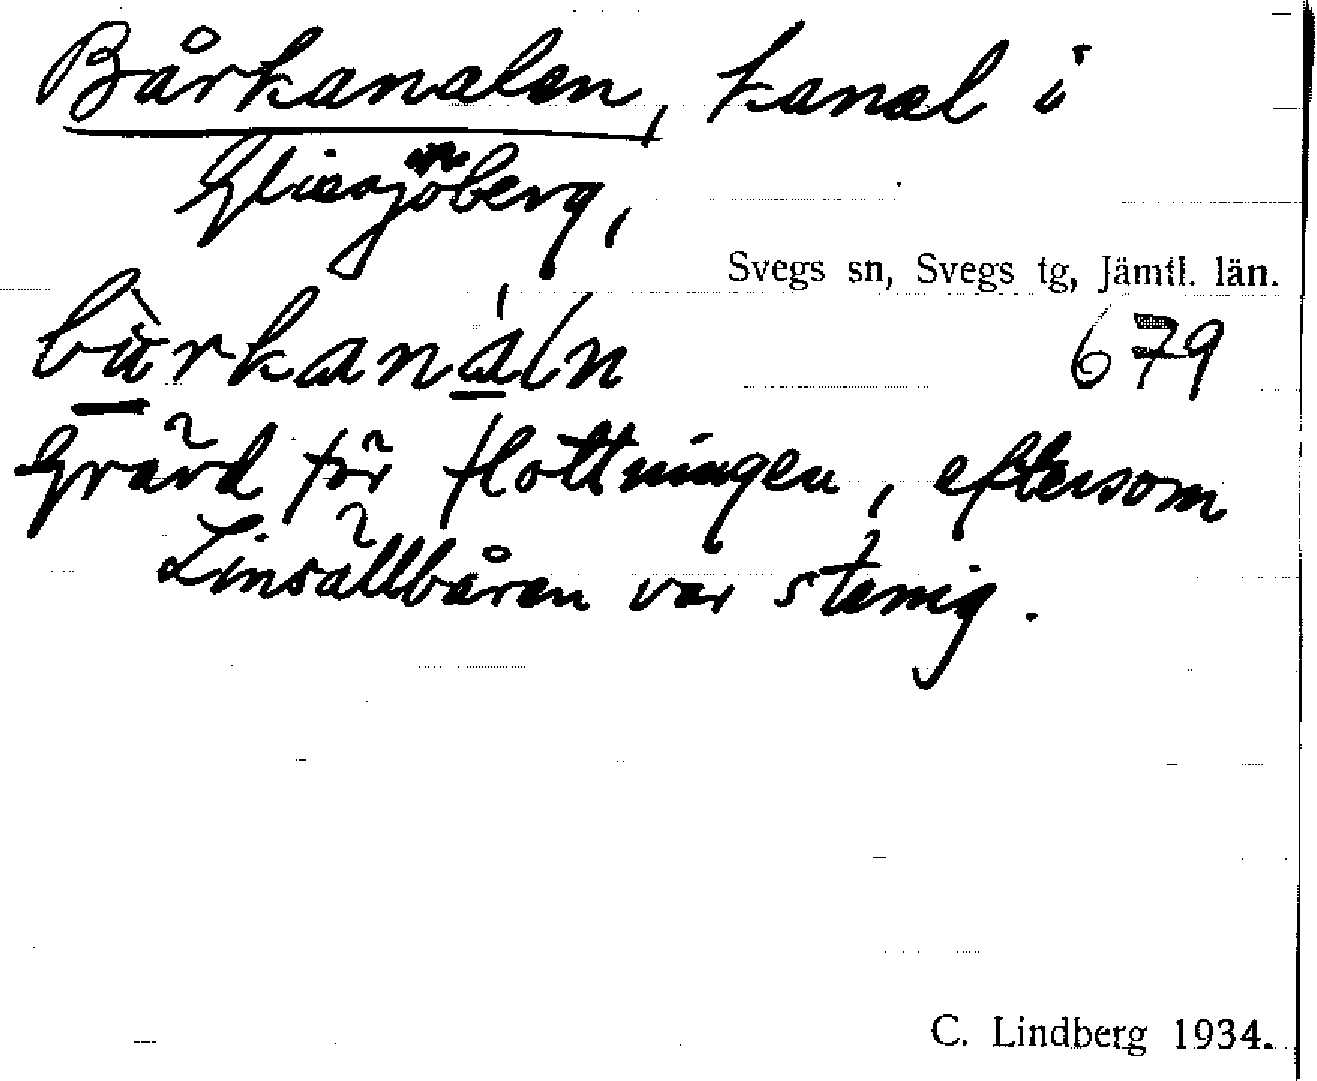 Bårkanalen, kanal i
Glissjöberg,
Svegs sn, Svegs tg, Jämtl. län.
679
Grävd för flottningen, eftersom
Linsällbåren var stenig.
C. Lindberg 1934.